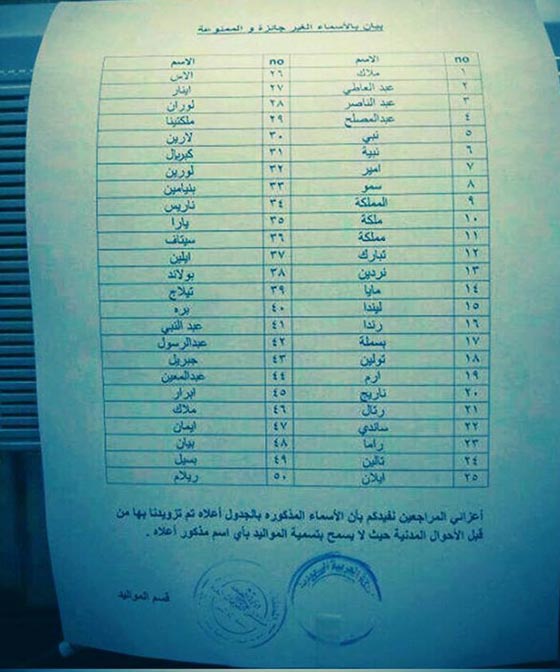 بيان بالأسماء الغير جائزة و الممنوعة
no الاسم no الاسم
١ ملاك ٢٦ الاس
٢ عبد العاطي ٢٧ اينار
٣ عبد الناصر ٢٨ لوران
٤ عبدالمصلح ٢٩ ملكتينا
٥ نبي ٣٠ لارين
٦ نبية ٣١ كبريال
٧ امير ٣٢ لورين
٨ سمو ٣٣ بنيامين
٩ المملكة ٣٤ ناريس
١٠ ملكة ٣٥ يارا
١١ مملكة ٣٦ سيتاف
١٢ تبارك ٣٧ ايلين
١٣ نردين ٣٨ بولاند
١٤ مايا ٣٩ تيلاج
١٥ ليندا ٤٠ بره
١٦ رندا ٤١ عبد النبي
١٧ بسملة ٤٢ عبدالرسول
١٨ تولين ٤٣ جبريل
١٩ أرم ٤٤ عبدالمعين
٢٠ ناريج ٤٥ ابرار
٢١ رتال ٤٦ ملاك
٢٢ ساندي ٤٧ ايمان
٢٣ راما ٤٨ بيان
٢٤ تالين ٤٩ بسيل
٢٥ ايلان ٥٠ ريلام
أعزائي المراجعين نفيدكم بأن الأسماء المذكوره بالجدول أعلاه تم تزويدنا بها من
قبل الأحوال المدنية حيث لا يسمح بتسمية المواليد بأي اسم مذكور أعلاه .
قسم المواليد